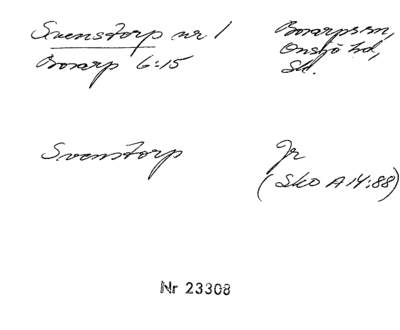 Svenstorp nr 1
Bosarp 6:15
Bosarps sn,
Onsjö hd,
Sk.
Svenstorp
Jr
(Sko A 14:88)
Nr 23308